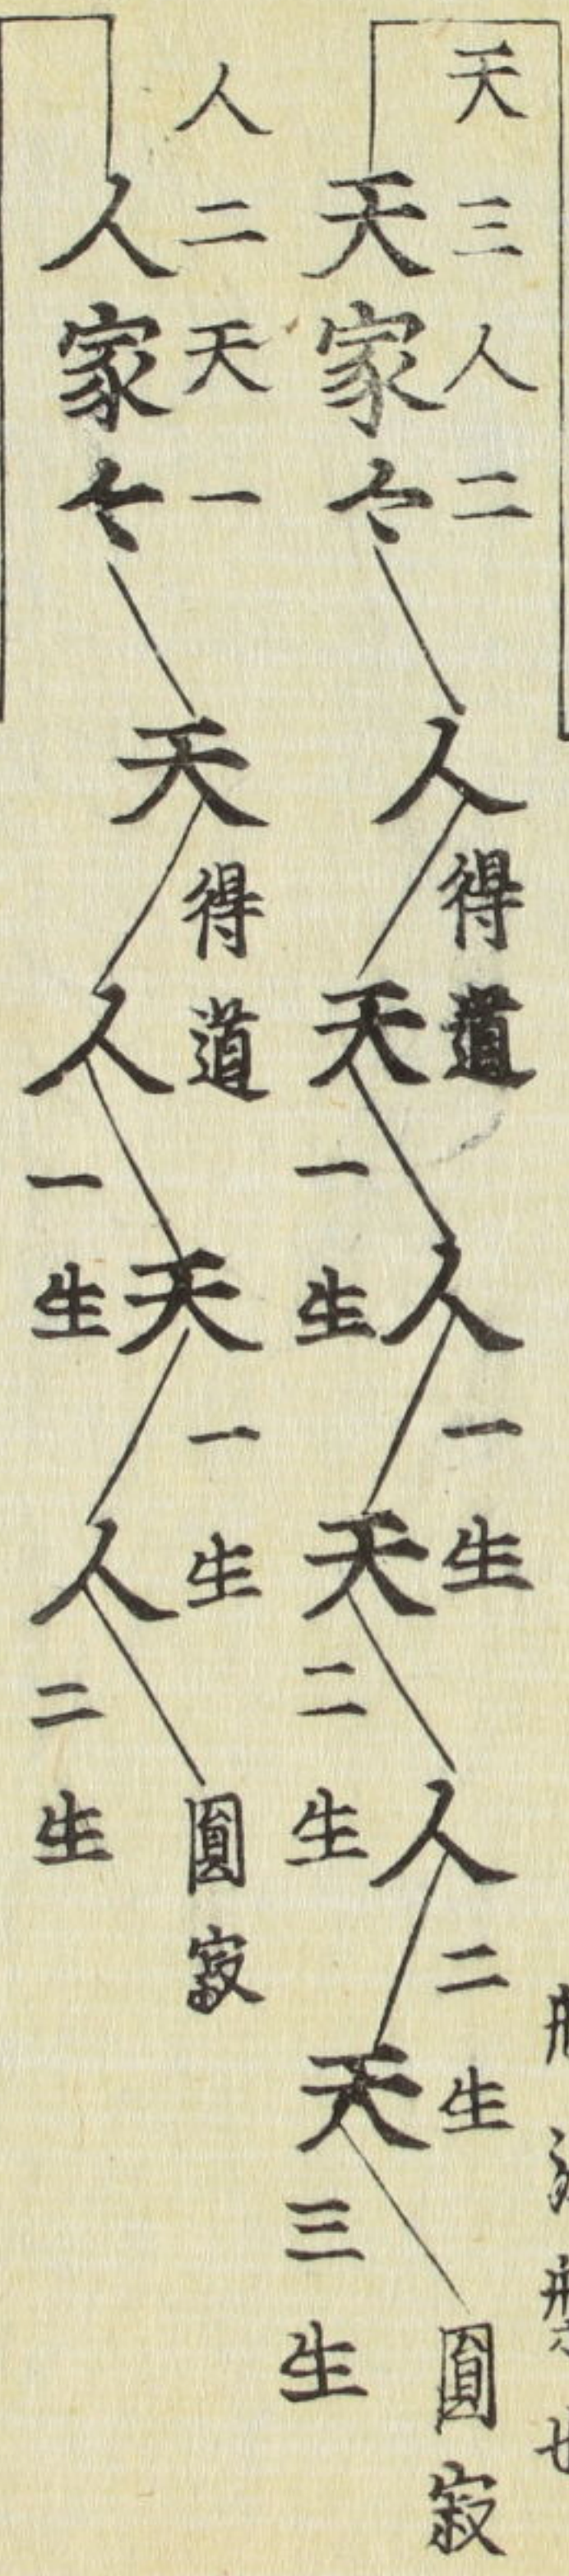 天三人二
天家々
人得道
天一生
人一生
天二生
人二生
天三生
圓寂
人二天一
人家々
天得道
人一生
天一生
人二生
圓寂